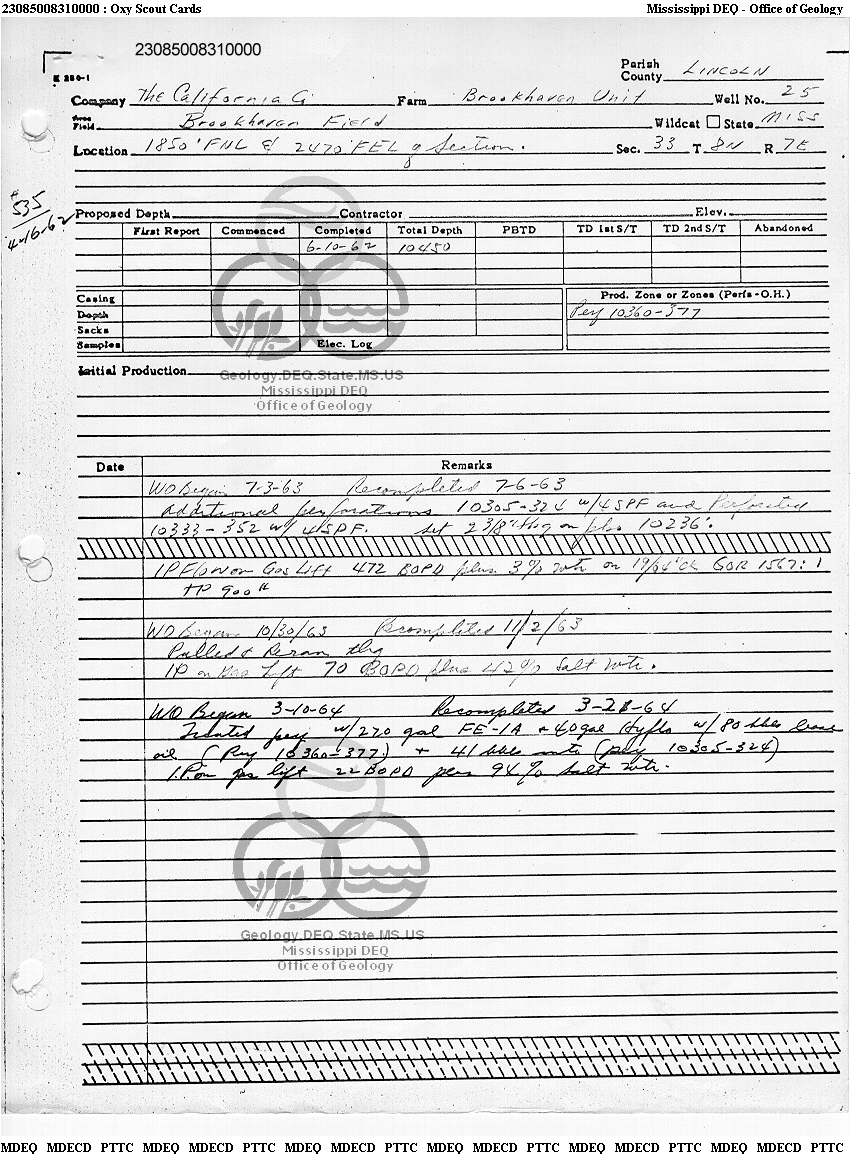 23085008310000 : Oxy Scout Cards Mississippi DEQ - Office of Geology
23085008310000
K 250-1
Parish
County LINCOLN
Company The California Co Farm Brookhaven Unit Well No. 25
Area
Field Brookhaven Field Wildcat State Miss
Location 1850' FNL & 2470' FEL of Section. Sec. 33 T 8N R 7E
# 535
4-16-62
Proposed Depth Contractor Elev.
First Report Commenced Completed Total Depth PBTD TD 1st S/T TD 2nd S/T Abandoned
6-10-62 10450
Casing Prod. Zone or Zones (Perfs - O.H.)
Depth Perf 10360-377
Sacks
Samples Elec. Log
Initial Production
Geology.DEQ.State.MS.US
Mississippi DEQ
Office of Geology
Date Remarks
WO Began 7-3-63 Recompleted 7-6-63
additional perforations 10305-324 w/4SPF and Perforated
10333-352 w/ 4 SPF. set 2 3/8" tbg on pkr 10236'.
IP Flow on Gas Lift 472 BOPD plus 3% wtr on 19/64" Ck GOR 1567:1
TP 900#
WO Began 10/30/63 Recompleted 11/2/63
Pulled & Reran tbg
IP on Gas Lift 70 BOPD plus 42% Salt wtr.
WO Began 3-10-64 Recompleted 3-28-64
Treated perf w/270 gal FE-1A + 40 gal Hyflo w/80 bbls lease
oil (Perf 10360-377) + 41 bbls into (perf 10305-324)
I.P. on gas lift 22 BOPD plus 94% salt wtr.
Geology.DEQ.State.MS.US
Mississippi DEQ
Office of Geology
MDEQ MDECD PTTC MDEQ MDECD PTTC MDEQ MDECD PTTC MDEQ MDECD PTTC MDEQ MDECD PTTC MDEQ MDECD PTTC